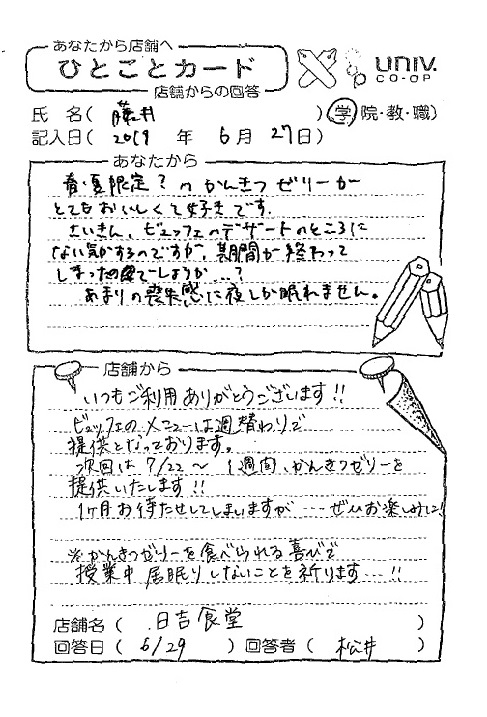 あなたから店舗へ
ひとことカード
店舗からの回答
UNIV.
CO-OP
氏 名( 藤井 ) 学・院・教・職)
記入日( 2019 年 6 月 27日)
あなたから
春・夏限定?のかんきつゼリーが
とてもおいしくて好きです。
さいきん、ビュッフェのデザートのところに
ない気がするのですが、期間が終わって
しまったのでしょうか…?
あまりの喪失感に夜しか眠れません。
店舗から
いつもご利用ありがとうございます!!
ビュッフェのメニューは週替わりで
提供となっております。
次回は 7/22〜 1週間、かんきつゼリーを
提供いたします!!
1ヶ月お待たせしてしまいますが…ぜひお楽しみに!
※かんきつゼリーを食べられる喜びで
授業中居眠りしないことを祈ります…!!
店舗名( 日吉食堂 )
回答日( 6/29 ) 回答者( 松井 )